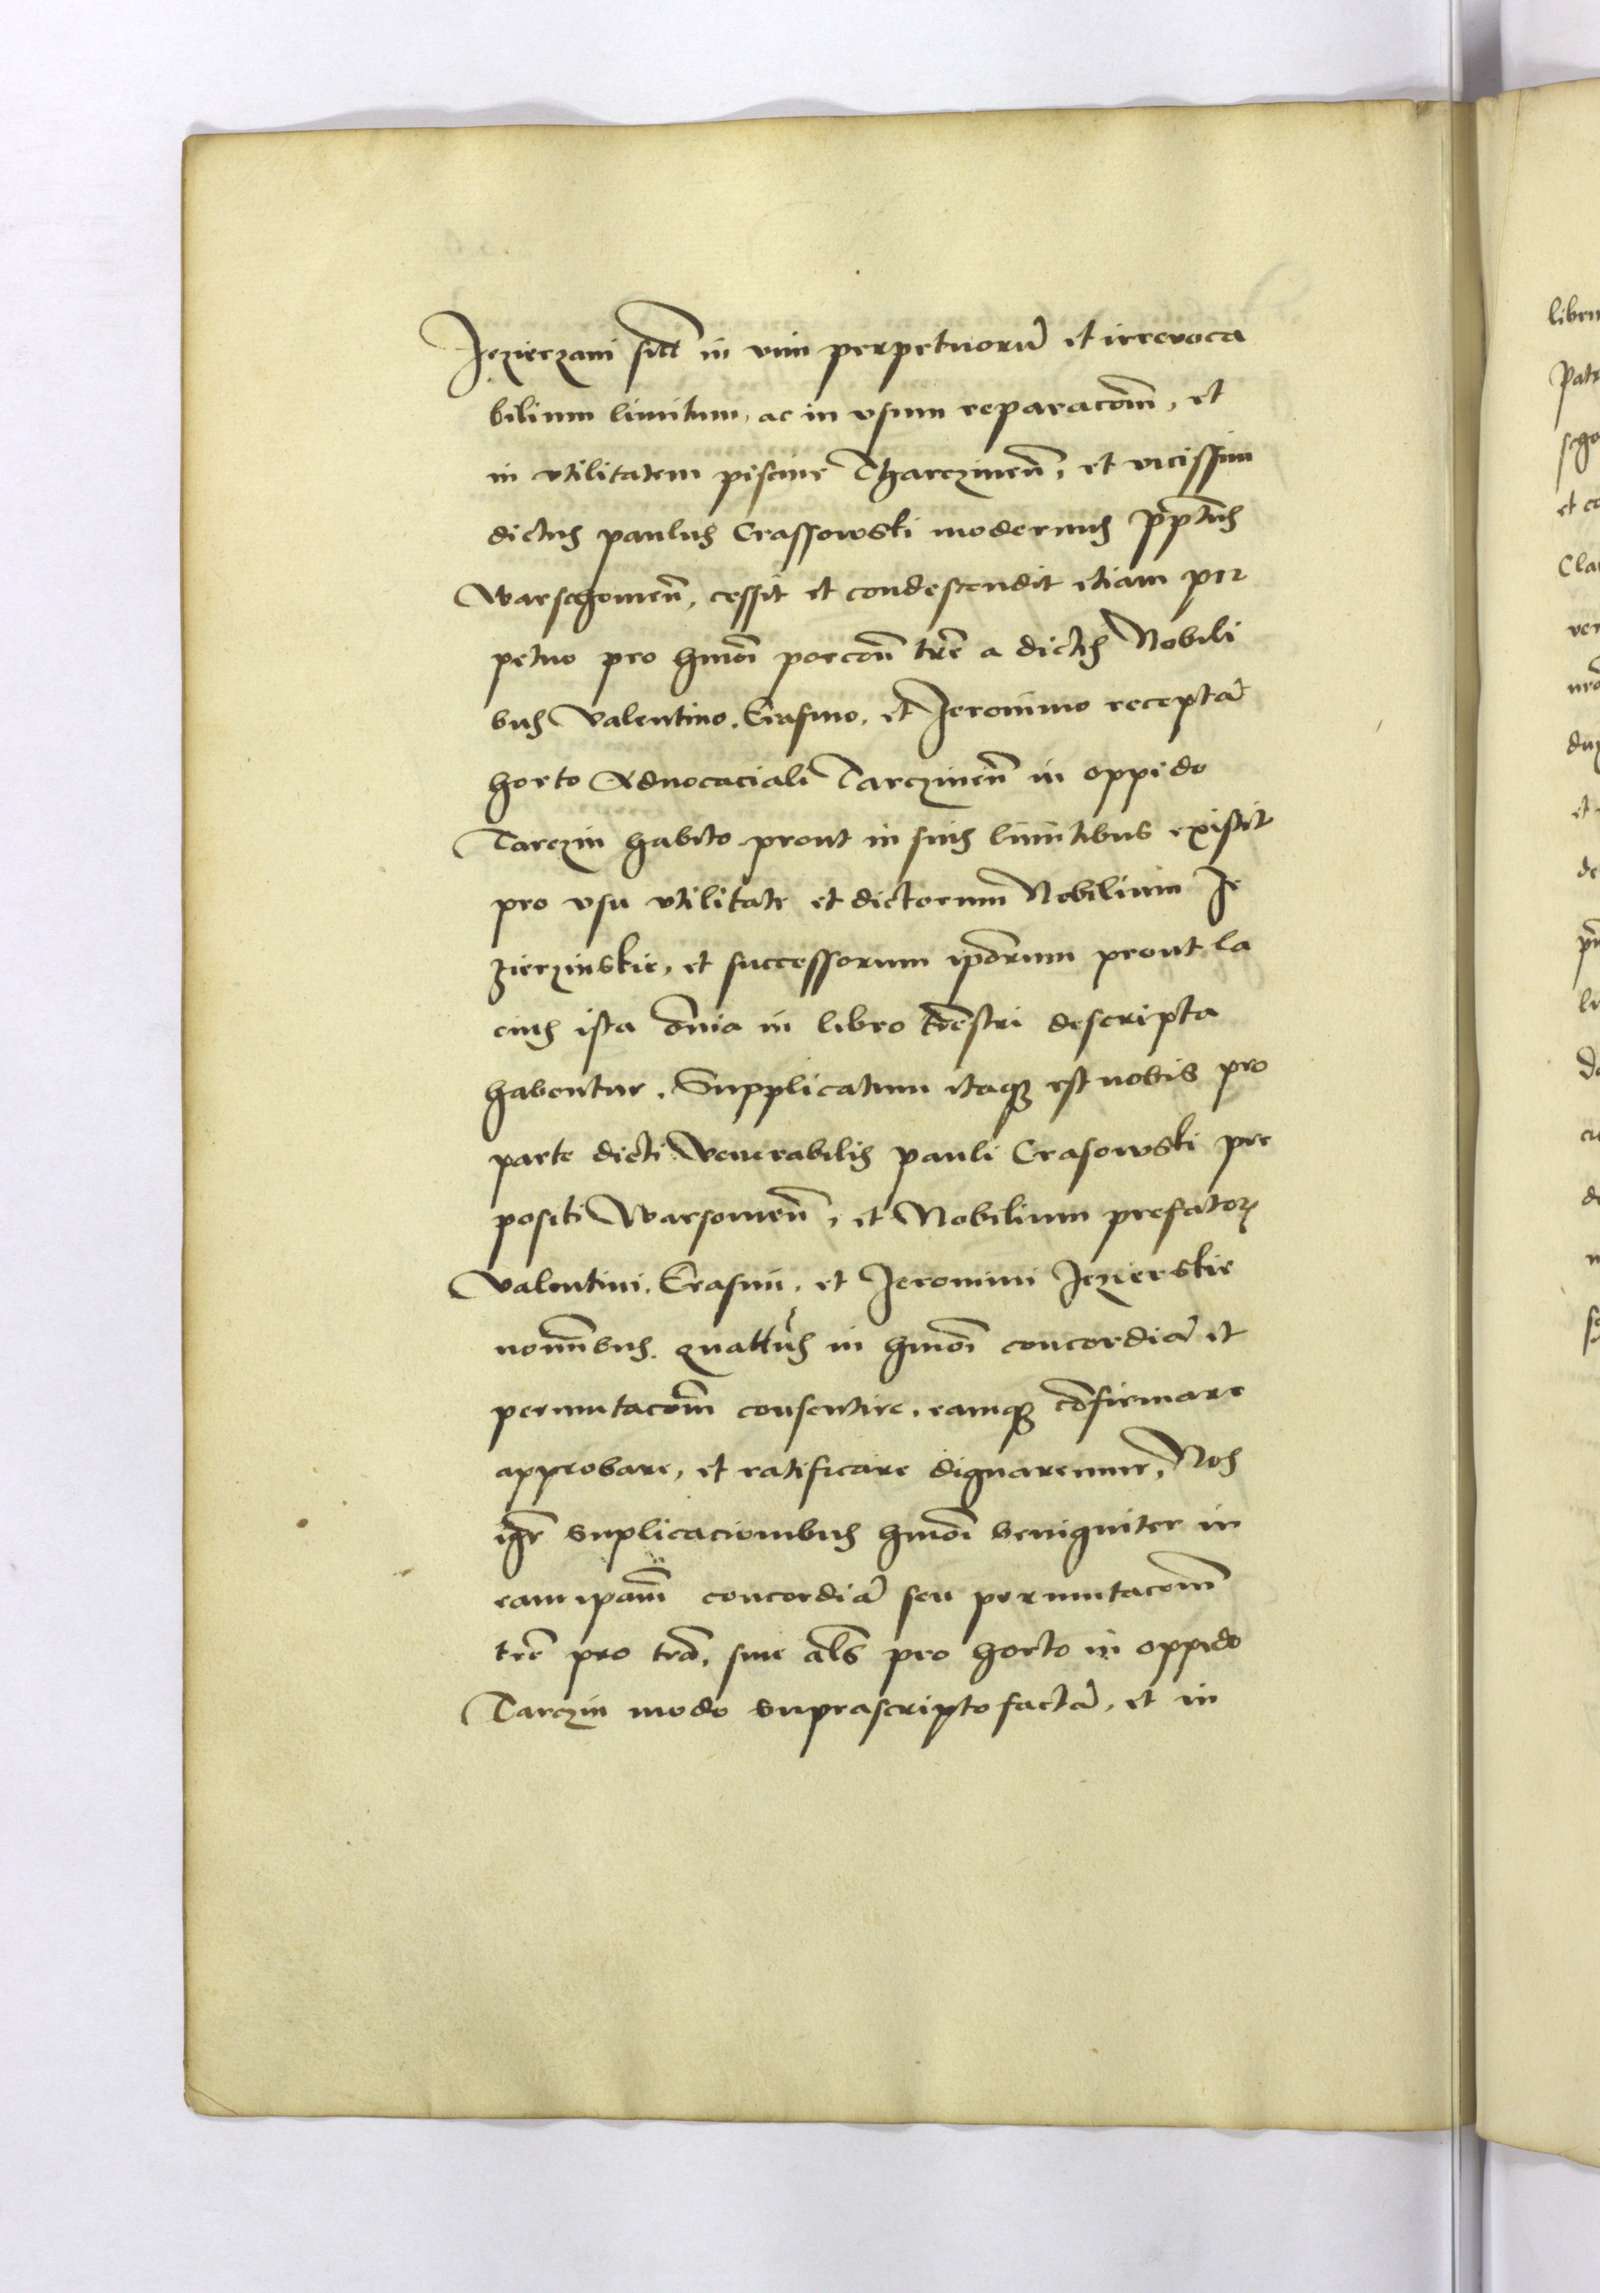 Jezierzani sitt in vim perpetuorū et irrevoca
bilium limitum, ac in vsum reparacoīm, et
in vtilitatem piscine Tharczineñ, et vicissim
dictus paulus Crassowski modernus p̄ptus
Warschomeñ, cessit et condescendit etiam per
petuo pro hmōi porcoñ tr̄e a dictis Nobili
bus Valentino. Erasmo, et Jeronimo receptā
horto Aduocaciali Tarczineñ in oppido
Tarczin habito prout in suis limitibus existit
pro vsu vtilitate et dictorum Nobilium Je
zierzinskie, et successorum ip̄orum prout la
cius ista om̄ia in libro tr̄estri descripta
habentur. Supplicatum itaqȝ est nobis pro
parte dicti Venerabilis pauli Crasowski pre
positi Warsomeñ, et Nobilium prefatorꝫ
Valentini. Erasmi, et Jeronimi Jezierskie
nom̄ibus. quattus in hmōi concordiā et
permutacoīm consentire, eamqȝ cōfirmare
approbare, et ratificare dignaremur, Nos
igr̄ suplicacionibus hmōi benigniter in
eam ip̄am̄ concordiā seu permutacoīm
tr̄e pro tr̄a, siue al̄s pro horto in oppido
Tarczin modo suprascripto factā, et in